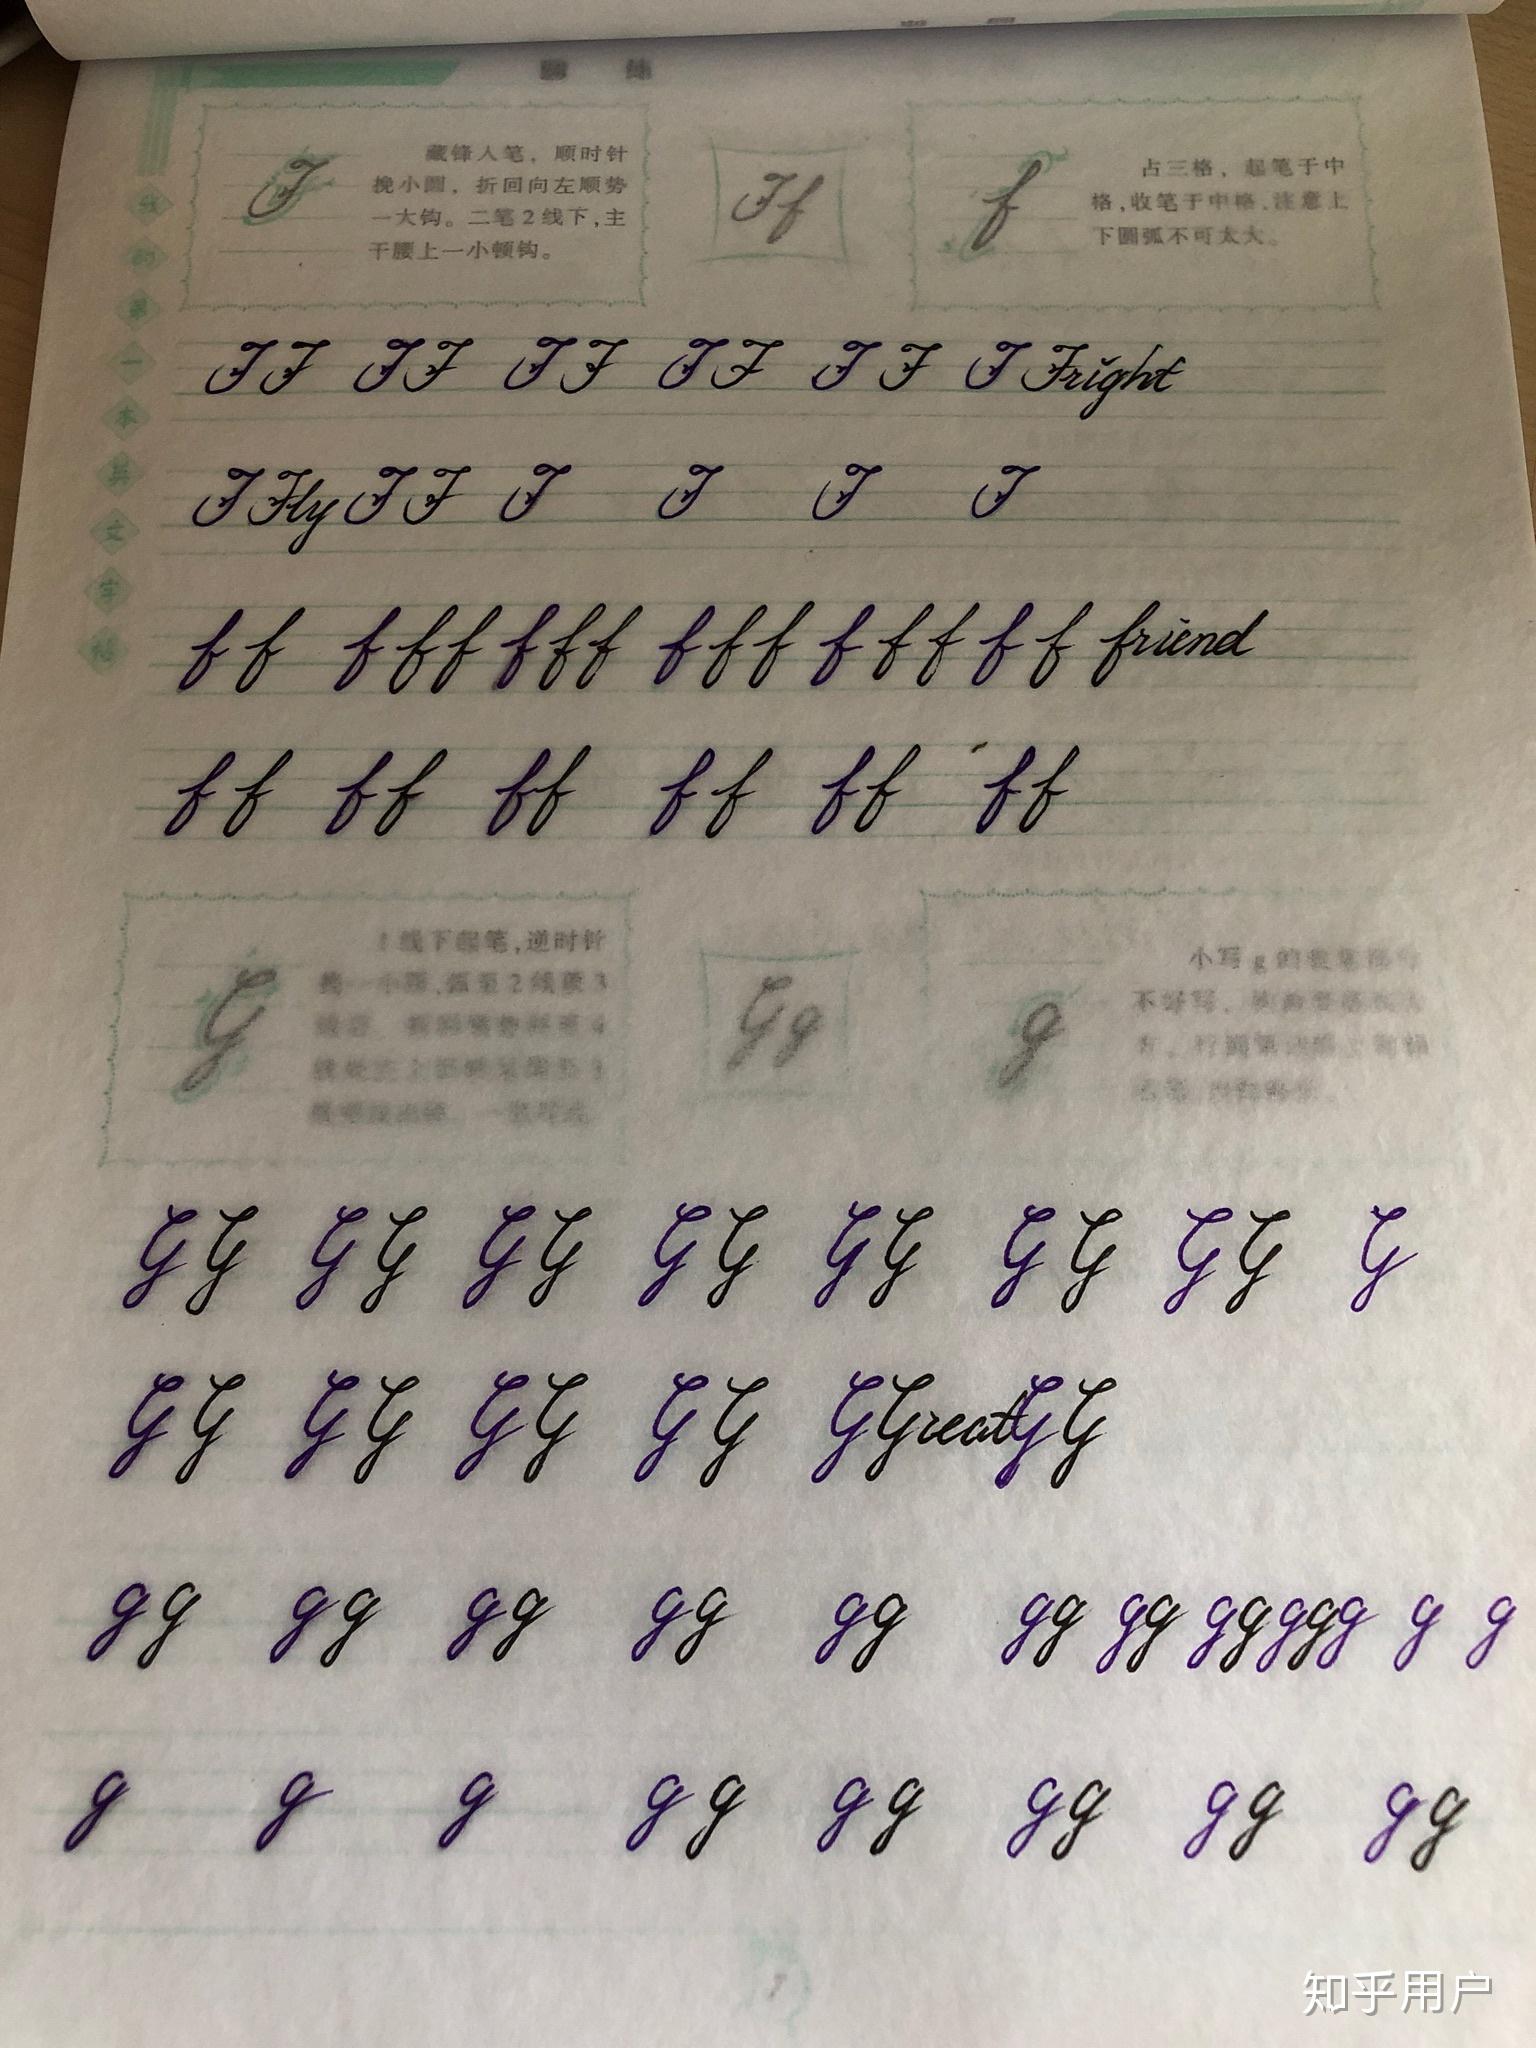 藏锋入笔，顺时针
挽小圆，折回向左顺势
一大钩。二笔2线下，主
干腰上一小顿钩。
F f
占三格，起笔于中
格，收笔于中格，注意上
下圆弧不可太大。
F
f
我的第一本英文字帖
F F F F F F F F F F F Fright
F Fly F F F F F F
f f f f f f f f f f f f f f f f f friend
f f f f f f f f f f f f
1线下起笔，逆时针
G
G g
g
小写g的
不好写，
G G G G G G G G G G G G G G G
G G G G G G G G G Great G G
g g g g g g g g g g g g g g g g g g g g g
g g g g g g g g g g g g g
7
知乎用户